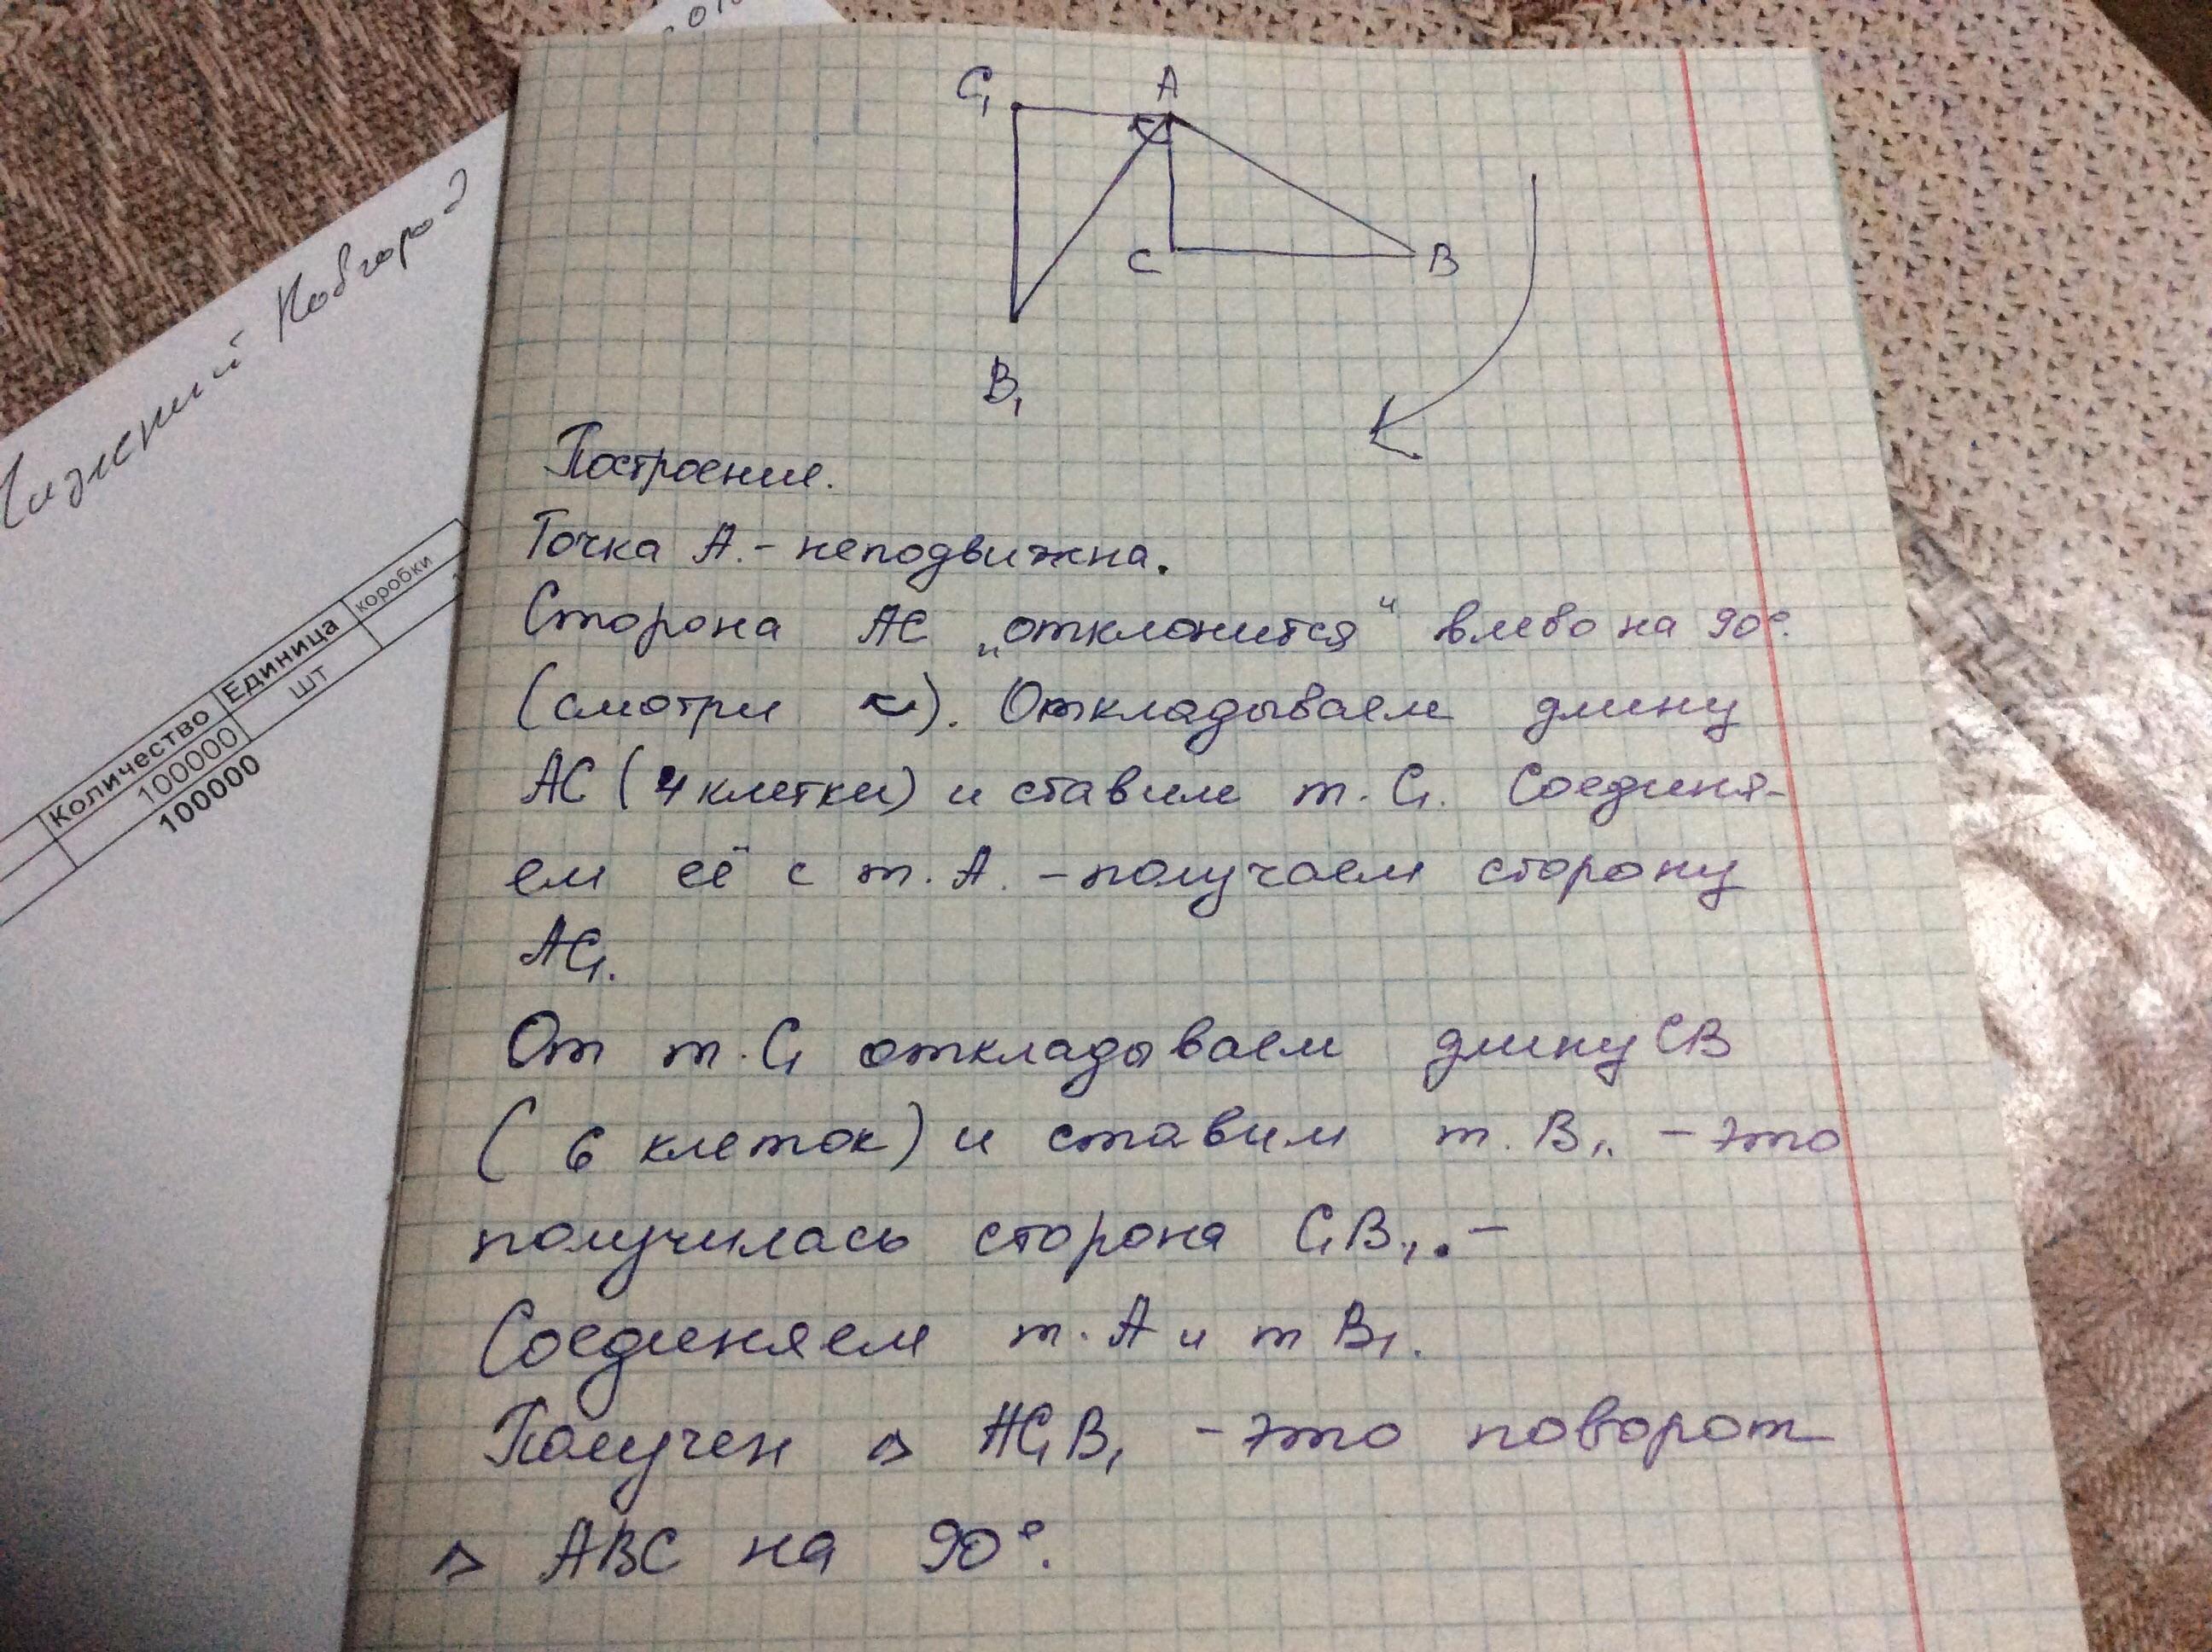 2010
Нижний Новгород
Количество Единица коробки
100000 шт
100000
C₁ A
C B
B₁
Построение.
Точка А. - неподвижна.
Сторона АС „отклонится“ влево на 90°.
(смотри ↖). Откладываем длину
АС (4 клетки) и ставим т. С₁. Соединя-
ем её с т. А. - получаем сторону
АС₁.
От т. С₁ откладываем длину СВ
( 6 клеток) и ставим т. В₁. - это
получилась сторона С₁В₁. -
Соединяем т. А и т В₁.
Получен △ АС₁В₁ - это поворот
△ АВС на 90°.